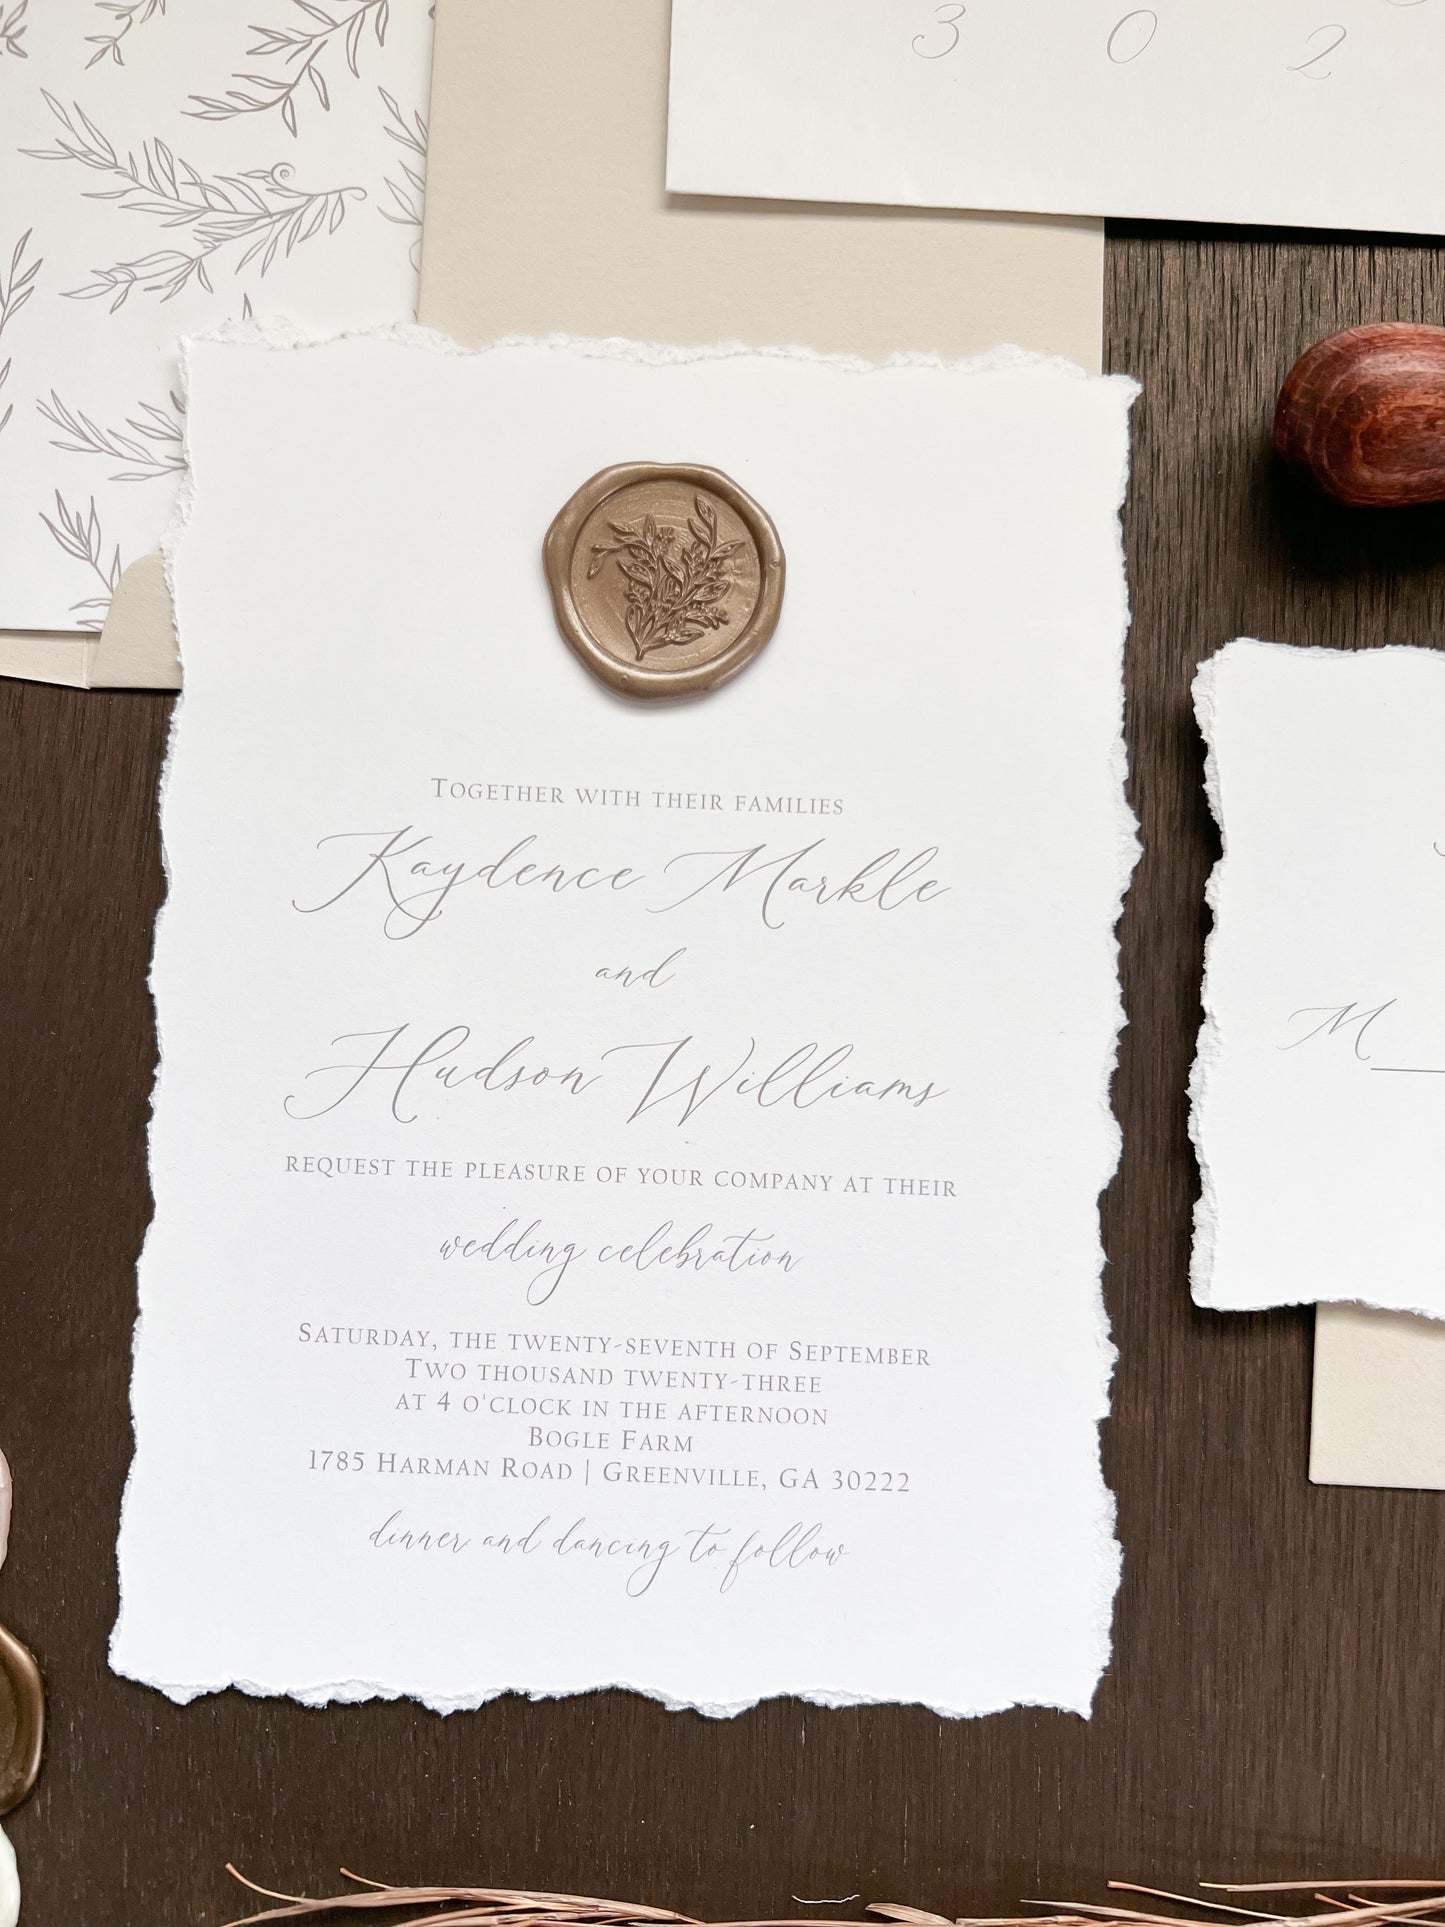 3 0 2
Together with their families
Kaydence Markle
and
Hudson Williams
request the pleasure of your company at their
wedding celebration
Saturday, the twenty-seventh of September
Two thousand twenty-three
at 4 o'clock in the afternoon
Bogle Farm
1785 Harman Road | Greenville, GA 30222
dinner and dancing to follow
M